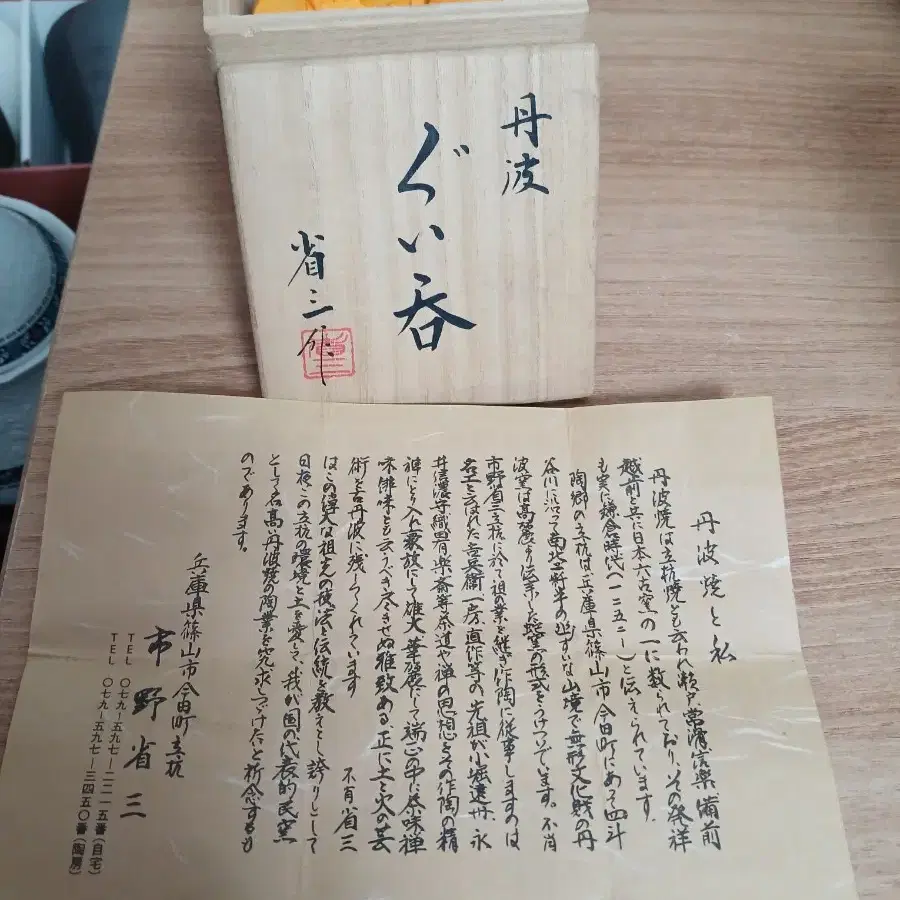 丹波
ぐい呑
省三作
丹波焼と私
丹波焼は立杭焼とも云われ瀬戸常滑信楽備前
越前と共に日本六古窯の一に数られており、その発祥
も実に鎌倉時代(一二五二ー)と伝えられています。
陶郷の立杭は兵庫県篠山市今田町にあつて四斗
谷川に沿って南北二粁半の ずいな山境で無形文化財の丹
波窯は高麗より伝承した蛇窯の形式をつけついでいます。不肖
市野省三立杭に於て祖の業を継ぎ作陶に従事しますのは
名工と云はれた 兵衛、房、直作等の先祖が小堀遠州、永
井信濃守織田有楽斎等茶道や禅の思想をその作陶の精
神にとり入れ豪放にして雄大華麗にして端正の中に茶味禅
味俳味とも云うべき尽きせぬ雅致ある、正に土と火の芸
術を古丹波に残してくれています 不肖省三
はこの偉大な祖先の技法と伝統を教えとし誇りとして
日夜この立杭の環境と土を愛して、我が国の代表的民窯
として名高い丹波焼の陶業を究求しつづけたいと祈念するも
のであります。
兵庫県篠山市今田町立杭
市野省三
TEL 〇七九ー五九七ー二一一五番(自宅)
TEL 〇七九ー五九七ー三四五〇番(陶房)